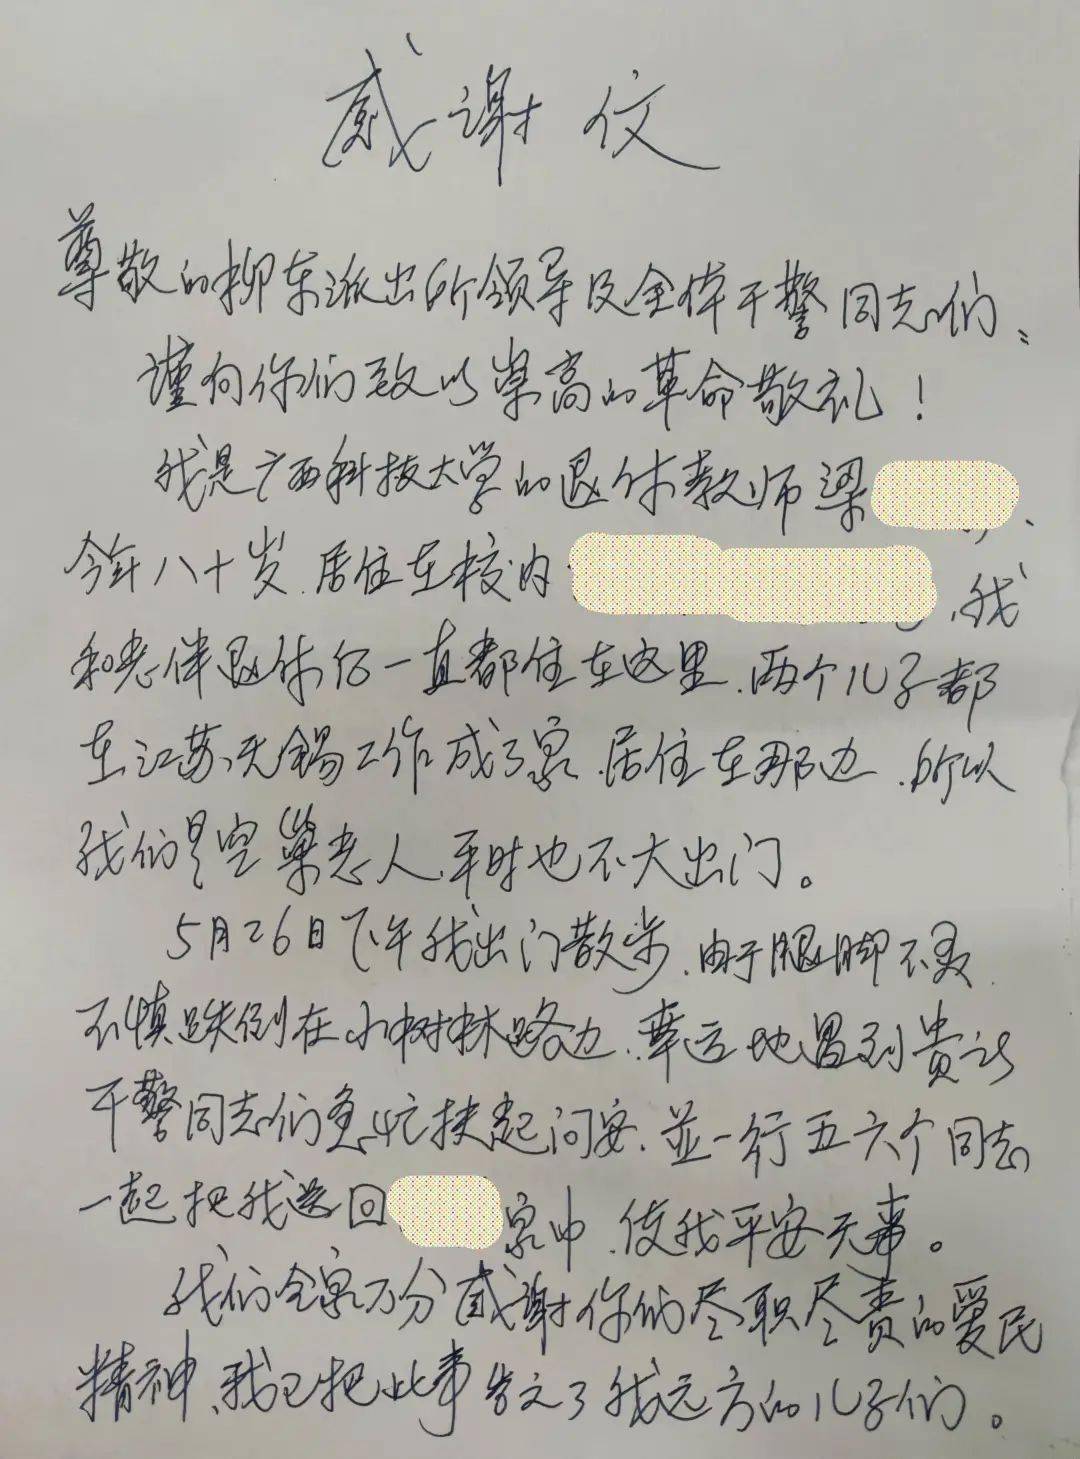 感谢信
尊敬的柳东派出所领导及全体干警同志们：
谨向你们致以崇高的革命敬礼！
我是广西科技大学的退休教师梁
今年八十岁.居住在校内 ,我
和老伴退休后一直都住在这里.两个儿子都
在江苏无锡工作成了家.居住在那边.所以
我们是空巢老人.平时也不大出门。
5月26日下午我出门散步.由于腿脚不灵
不慎跌倒在小树林路边.幸运地遇到贵所
干警同志们急忙扶起问安.并一行五六个同志
一起把我送回 家中.使我平安无事。
我们全家万分感谢你们尽职尽责的爱民
精神、我已把此事告之了我远方的儿子们。